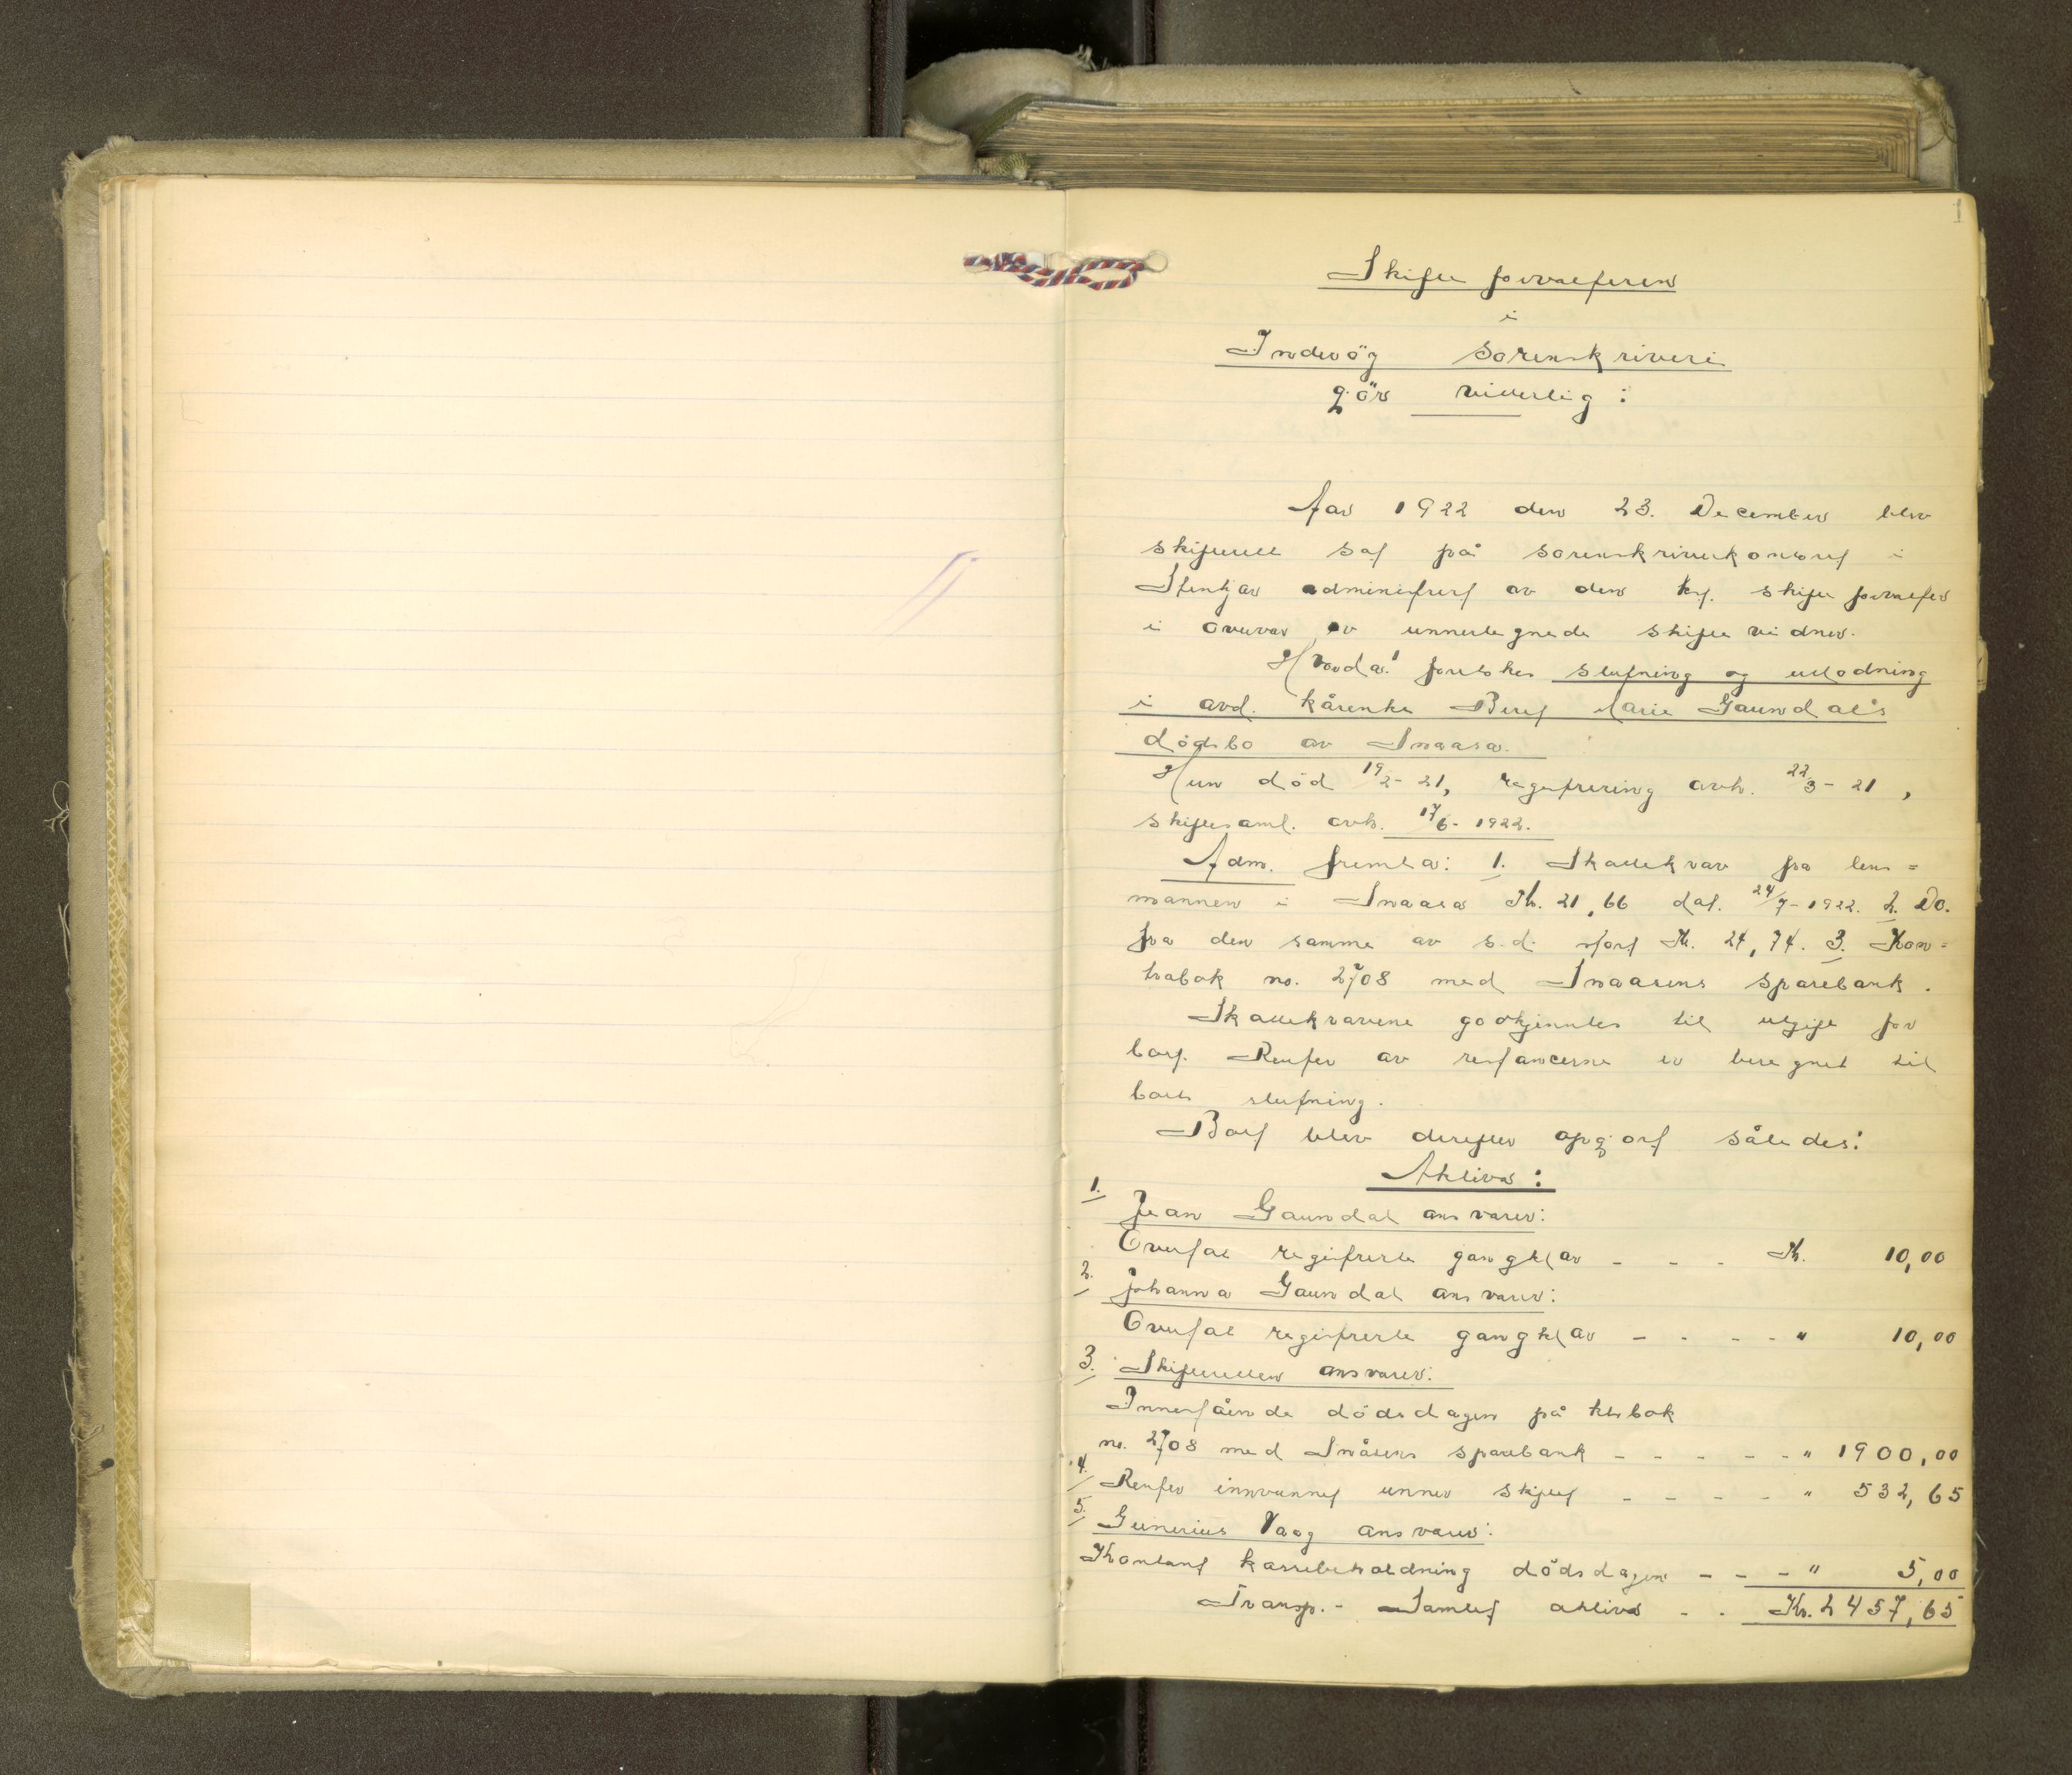 1
Skifteforvalteren
i
Inderøy sorenskriveri
gjör vitterlig:
Aar 1922 den 23. December blev
skifterett sat på sorenskriverkontoret i
Stenkjær administrert av den kst. skifteforvalter
i overvær av unnertegnede skiftevidner.
Hvorda! foretokes slutning og utlodning
i avd. kårenke Beret Marie Gaundal's
dödsbo av Snaasa.
Hun död 19/2-21, registrering avh. 22/3-21,
skiftesaml. avh. 17/6-1922.
Adm. fremla: 1. Skattekrav fra lens=
mannen i Snaasa Kr. 21,66 dat. 24/7-1922. 2. Do.
fra den samme av s.d. stort Kr. 24,74. 3. Kon=
trabok no. 2708 med Snaasens sparebank.
Skattekravene godkjenntes til utgift for
boet. Renter av restancerne er beregnet til
boets slutning.
Boet blev derefter opgjort således:
Aktiva:
1. Jean Gaundal ansvarer:
Overtat registrerte gangklær - - - Kr. 10,00
2. Johanna Gaundal ansvarer:
Overtat registrerte gangklær - - - - " 10,00
3. Skifteretten ansvarer:
Innestående dödsdagen på ktrbok
no. 2708 med Snåsens sparebank - - - - - " 1900,00
4. Renter innvunnet unner skiftet - - - - - " 532,65
5. Gunerius Vaag ansvarer:
Kontant kassebeholdning dödsdagen - - - " 5,00
Transp. - Samlet aktiva - - Kr. 2457,65